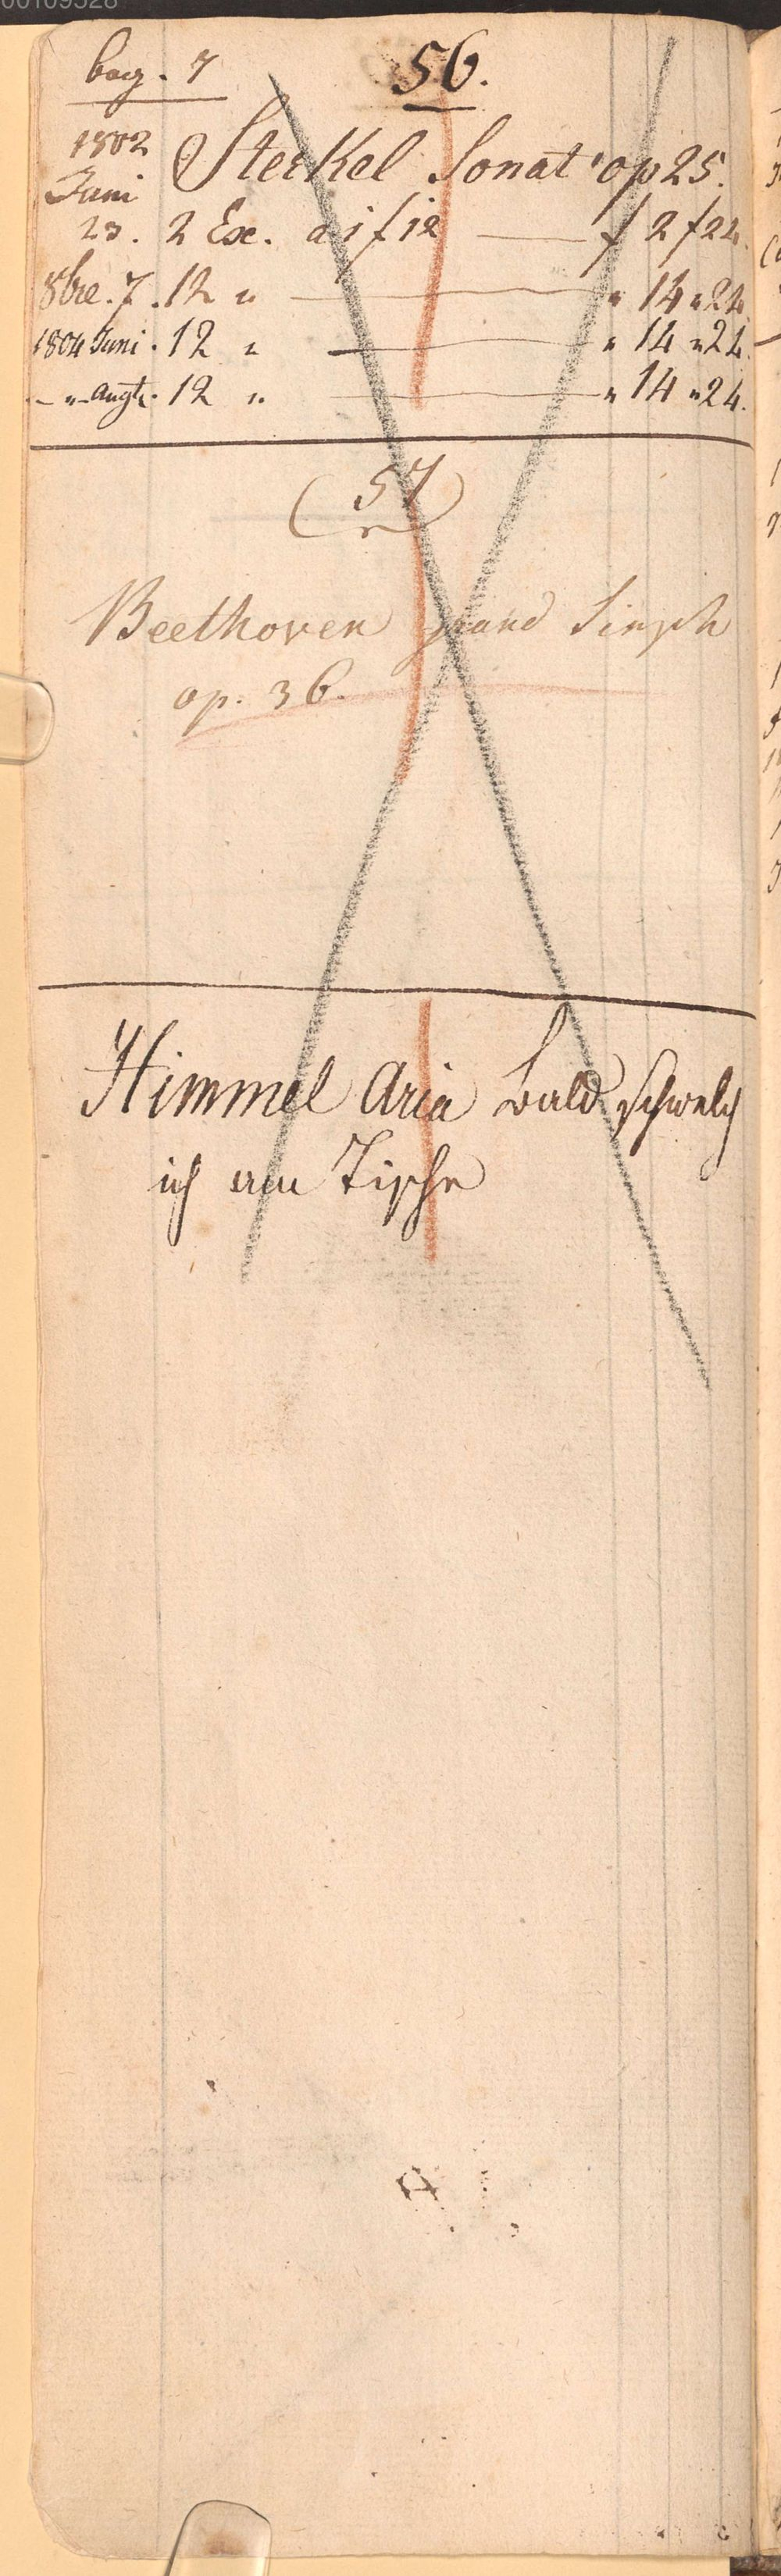 00109528
bog. 7
56.
1802 Sterkel Sonat. op 25.
Juni
23. 2 Exe. a 1 f 12 — f 2 f 24.
8bre. 7. 12 " — " 14 " 24.
1804 Juni. 12 " — " 14 " 24.
- " - Augt. 12 " — " 14 " 24.
57
Beethoven grand Sinph
op. 36.
Himmel Aria bald schwelg
ich am Tische